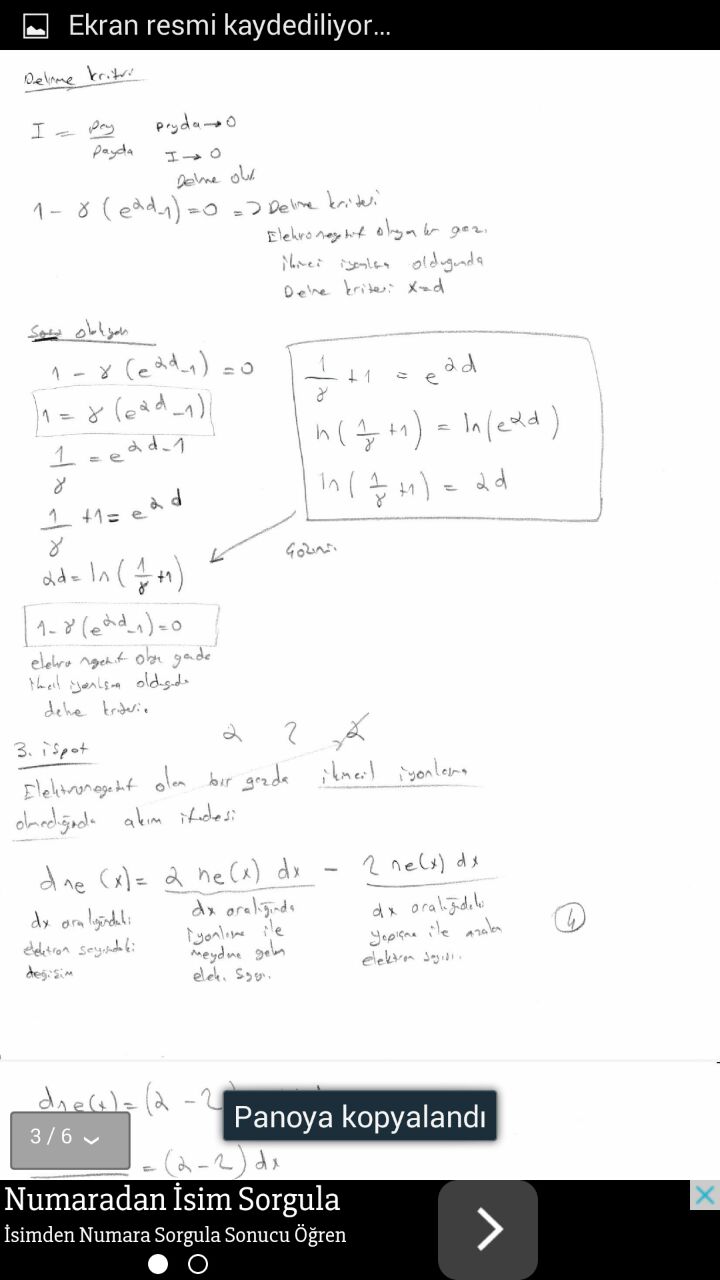 Ekran resmi kaydediliyor...
Delinme kriteri
I = pay / payda payda → 0
I → 0
Delinme olur.
1 - γ (e^αd - 1) = 0 => Delinme kriteri
Elektronegatif olmayan bir gaz.
ikincil iyonlaşma olduğunda
Delinme kriteri x=d
1 - γ (e^αd - 1) = 0
1 = γ (e^αd - 1)
1/γ = e^αd - 1
1/γ + 1 = e^αd
αd = ln(1/γ + 1)
1/γ + 1 = e^αd
ln(1/γ + 1) = ln(e^αd)
ln(1/γ + 1) = αd
1 - γ (e^αd - 1) = 0
elektro negatif olan gazda
ikincil iyonlaşma olduğunda
delinme kriteri.
α 2 α
3. ispot
Elektronegatif olan bir gazda ikincil iyonlaşma
olmadığında akım ifadesi
dne (x) = α ne(x) dx - 2 ne(x) dx
dx aralığındaki
elektron sayısındaki
değişim
dx aralığında
iyonlaşma ile
meydana gelen
elek. sayısı.
dx aralığındaki
yapışma ile azalan
elektron sayısı.
4
dne(x) = (α - 2)
= (α - 2) dx
3 / 6
Panoya kopyalandı
Numaradan İsim Sorgula
İsimden Numara Sorgula Sonucu Öğren